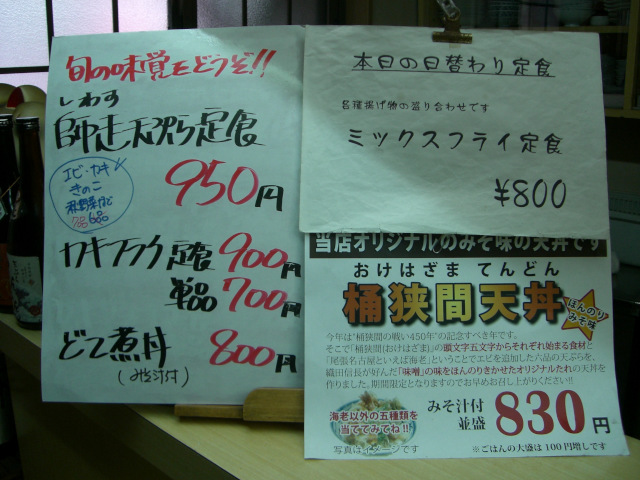 旬の味覚をどうぞ!!
しわす
師走天ぷら定食
950円
エビ・カキ
きのこ
秋野菜など
カキフライ定食 900円
単品 700円
どて煮丼 800円
(みそ汁付)
本日の日替わり定食
各種揚げ物の盛り合わせです
ミックスフライ定食
¥800
当店オリジナルのみそ味の天丼です
おけはざま てんどん
桶狭間天丼
ほんのり
みそ味
今年は"桶狭間の戦い450年"の記念すべき年です。
そこで「桶狭間(おけはざま)」の頭文字五文字からそれぞれ始まる食材と
「尾張名古屋といえば海老」ということでエビを追加した六品の天ぷらを、
織田信長が好んだ「味噌」の味をほんのりきかせたオリジナルたれの天丼を
作りました。期間限定となりますのでお早めお召し上がりください!!
海老以外の五種類を
当ててみてね!!
写真はイメージです
みそ汁付
並盛 830円
※ごはんの大盛は100円増しです